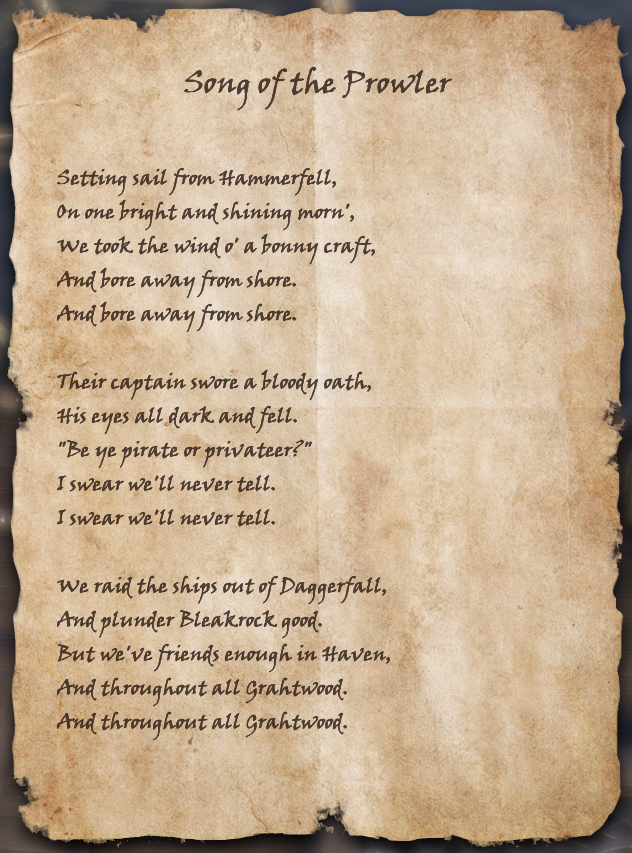 Song of the Prowler
Setting sail from Hammerfell,
On one bright and shining morn',
We took the wind o' a bonny craft,
And bore away from shore.
And bore away from shore.
Their captain swore a bloody oath,
His eyes all dark and fell.
"Be ye pirate or privateer?"
I swear we'll never tell.
I swear we'll never tell.
We raid the ships out of Daggerfall,
And plunder Bleakrock good.
But we've friends enough in Haven,
And throughout all Grahtwood.
And throughout all Grahtwood.